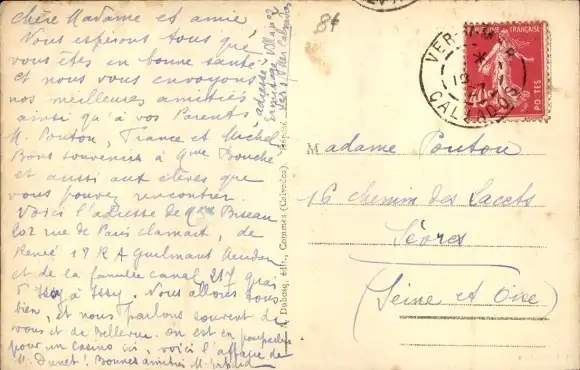 chère Madame et amie
Nous espérons tous que
vous êtes en bonne santé
et nous vous envoyons
nos meilleures amitiés
ainsi qu'à vos Parents
M. Pouton, France et Michel
Bons souvenirs à Mme Bouché
et aussi aux élèves que
vous pouvez rencontrer.
Voici l'adresse de Mme Buseau
202 rue de Paris Clamart, de
Renée 18 R A Guilmant Meudon
et de la famille Canal 217 quai
à Issy. Nous allons tous
bien, et nous parlons souvent de
vous et de Bellevue. On est en
pour un casino ici, voici l'affaire de
M. Dunet! Bonnes amitiés M.
adresse villa
Vers Mer Calvados
84
VER-MER
19
CALVADOS
FRANÇAISE
POSTES
Dubosq, édit., Commes (Calvados).
Madame Pouton
16 chemin des Lacets
Sèvres
(Seine et Oise)